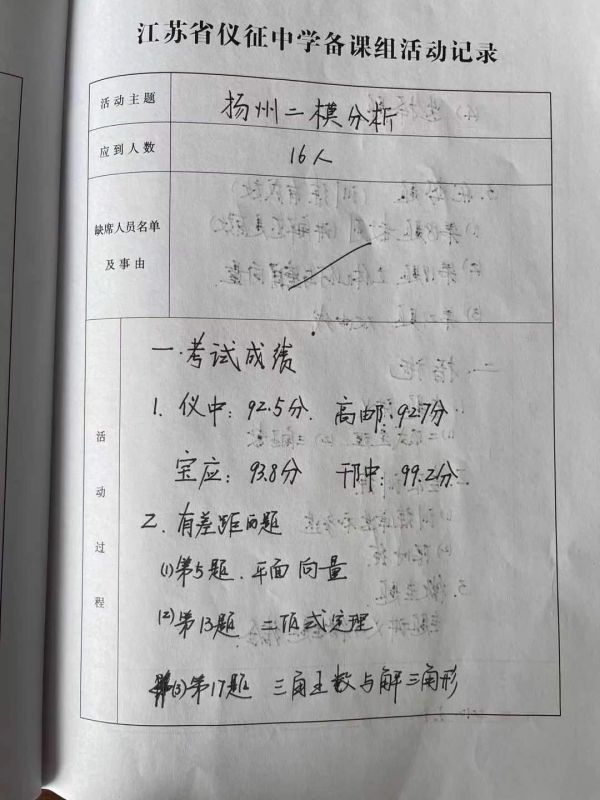 江苏省仪征中学备课组活动记录
活动主题
扬州二模分析
应到人数
16人
缺席人员名单
及事由
活动过程
一.考试成绩
1. 仪中: 92.5分. 高邮: 92.7分
宝应: 93.8分 邗中: 99.2分.
2. 有差距的题
(1)第5题. 平面向量
(2)第13题 二项式定理
(3)第17题 三角函数与解三角形